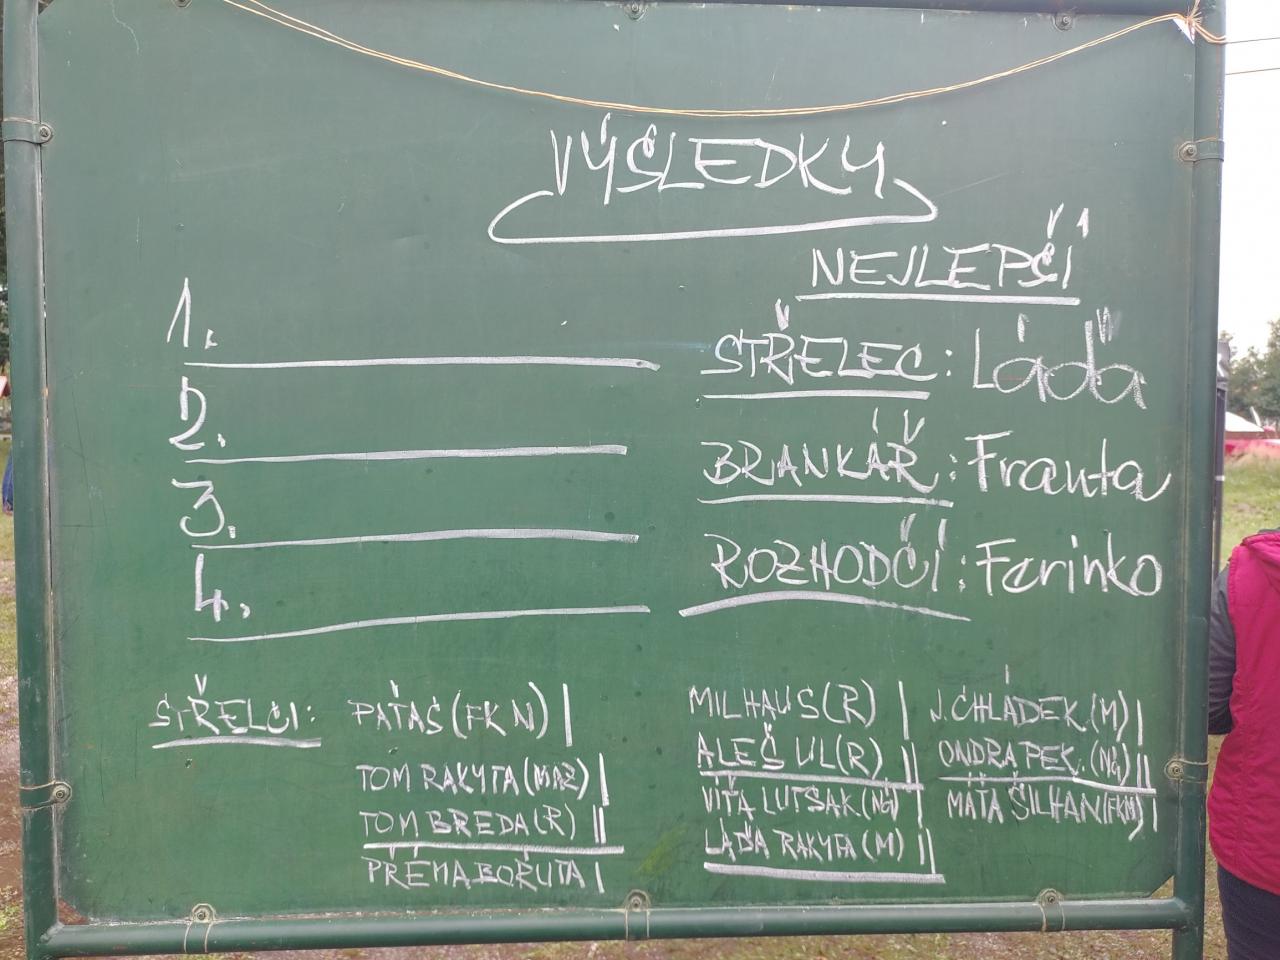 VÝSLEDKY
NEJLEPŠÍ
1.
2.
3.
4.
STŘELEC: Láďa
BRANKÁŘ: Franta
ROZHODČÍ: Ferinko
STŘELCI:
PAŤAS (FK N) |
TOM RAKYTA (MAZ) |
TOM BREDA (R) ||
PRÉMA BORUTA |
MILHAUS (R) |
ALEŠ UL (R) ||
VÍŤA LUTSAK (NG) |
LÁĎA RAKYTA (M) ||
J. CHLÁDEK (M) |
ONDRA PEK. (NG) ||
MÁŤA ŠILHAN (FKN) |